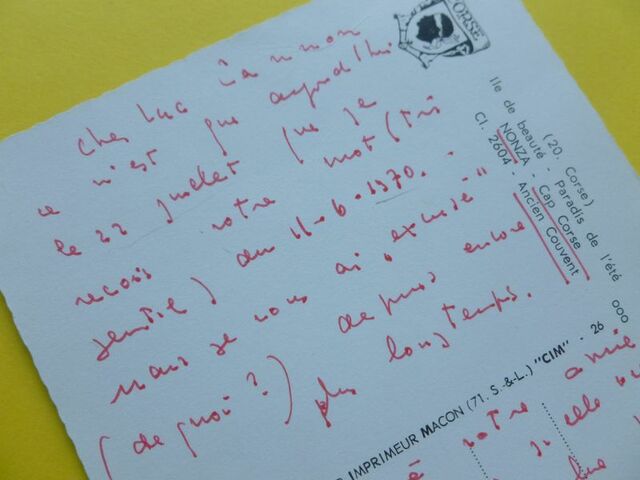 CORSE
Cher Luc
ce n'est que aujourd'hui
le 22 juillet que je
recois votre mot (très
gentil) du 11-6-1970.
mais je vous ai "excusé"
(de quoi?) depuis encore
plus longtemps.
(20. Corse)
Ile de beauté - Paradis de l'été
NONZA - Cap Corse
CI. 2604 - Ancien Couvent
IMPRIMEUR MACON (71. S.-&-L.) "CIM" - 26 000
votre amie
elle